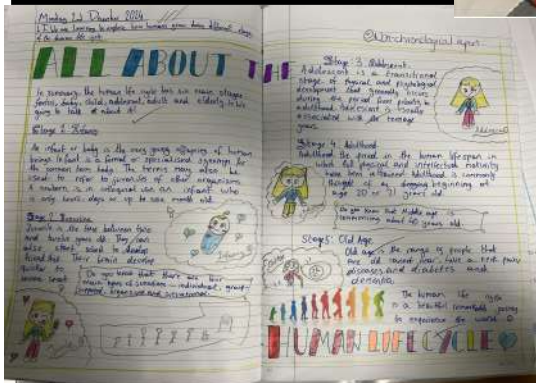 Monday 2nd December 2024
L.I. We are learning to explore how humans grow
the human life cycle
ALL ABOUT TH
In summary, the human life cycle has six main stages
foetus, baby, child, adolescent, adult and elderly
about it!
Stage 1:
An infant or baby is the very young offspring of human
beings. Infant is a formal or specialised synonym for
the common term baby. The terms may also be
used to refer to juveniles of other organisms.
A newborn is in colloquial use an infant who
is only hours, days or up to one month old.
Stage 2:
is the time between two
and twelve years old. They can
also start school to develop
friendships. Their brain
quicker to
Do you know that there are four
main types of
Non-chronological report
Stage: 3. Adolescent.
Adolescent is a transitional
stage of physical and psychological
development that generally occurs
during the period from puberty to
adulthood. Adolescent is usually
associated with the teenage
years.
Stage 4: Adulthood
Adulthood the period in the human lifespan in
which full physical and intellectual maturity
have been attained. Adulthood is commonly
thought of as beginning at
age 20 or 21 years old.
Do you know that Middle age is
commencing about 40 years old
Stage 5: Old Age.
Old age is the range of people that
are old
diseases and diabetes and
dementia.
The human life cycle
is a beautiful remarkable journey
to experience the world
HUMAN LIFE CYCLE